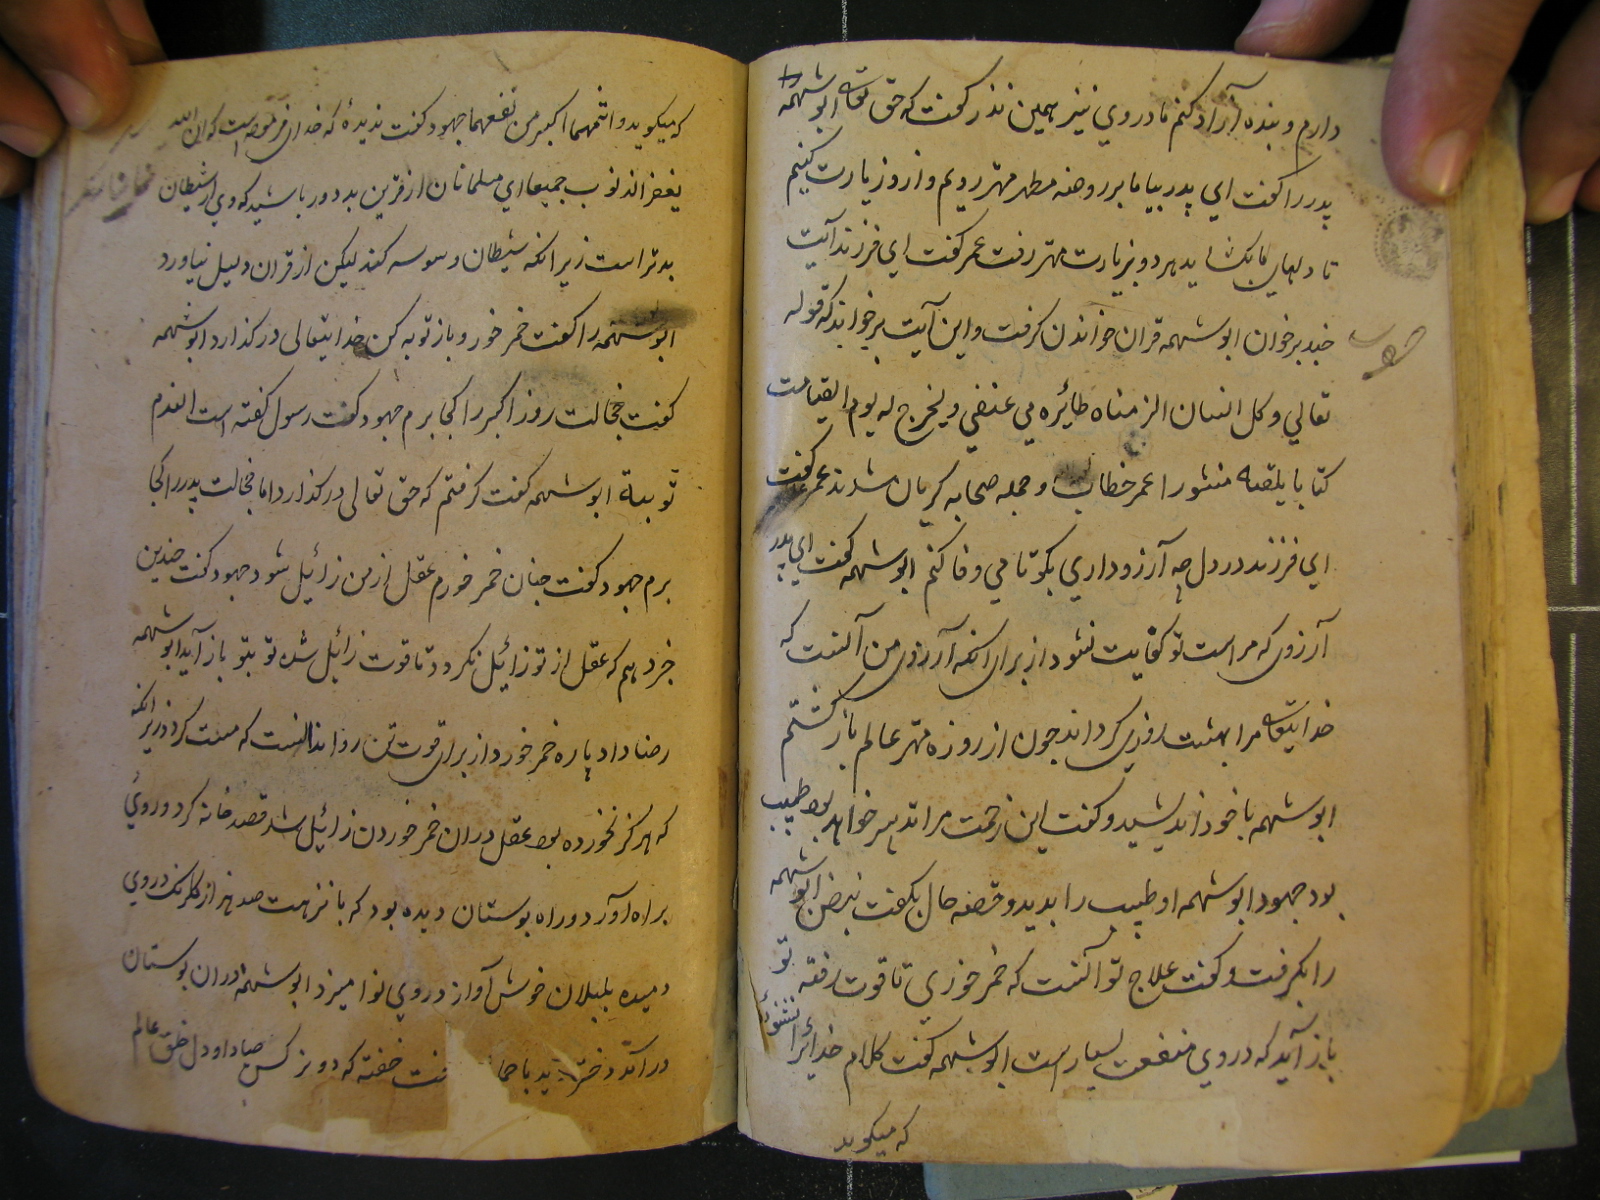 دارم و بنده آزاد کنم مادر وی نیز همین نذر کفت که حق تعالی ابو شهمه را
پدر را کفت ای پدر بیا ما بر روضه مطهر مهتر رویم و از و زیارت کنیم
تا دلهای ما بکشاید هر دو بزیارت مهتر رفت عمر کفت ای فرزند آیت
چند بر خوان ابو شهمه قران خواندن کرفت و این آیت بر خواند که قوله
تعالی و کل انسان الزمناه طائره فی عنقه و نخرج له یوم القیامت
کتابا یلقیه منشورا عمر خطاب و جمله صحابه کریان شدند عمر کفت
ای فرزند در دل چه آرزو داری بکو تا من وفا کنم ابو شهمه کفت ای پدر
آرزوی که مراست تو کفایت نشود از برای انکه آرزوی من آنست که
خدایتعالی مرا بهشت روزی کرداند چون از روزه مهتر عالم باز کشتم
ابو شهمه با خود اندیشید و کفت این زحمت مرا تدبیر خواهد بود طبیب
بود جهود ابو شهمه او طبیب را بدید و قصه حال بکفت نبض ابو شهمه
را بکرفت و کفت علاج تو آنست که خمر خوری تا قوت رفته تو
باز آید که در وی منفعت بسیار است ابو شهمه کفت کلام خدایرا نشنوءٔ
که میکوید
که میکوید و اثمهما اکبر من نفعهما جهود کفت ندیدهٔ که خدای فرموده است که ان الله
یغفر الذنوب جمیعا ای مسلمانان از قرین بد دور باشید که وی از شیطان
بدتر است زیرا انکه شیطان وسوسه کند لیکن از قران دلیل نیاورد
ابو شهمه را کفت خمر خور و باز توبه کن خدایتعالی در کذارد ابو شهمه
کفت خجالت روز اکبر را کجا برم جهود کفت رسول کفته است الندم
توبة ابو شهمه کفت کرفتم که حق تعالی در کذارد اما خجالت پدر را کجا
برم جهود کفت چنان خمر خورم عقل از من زائیل شود جهود کفت چندین
خرد هم که عقل از تو زائیل نکردد تا قوت زائیل شده تو بتو باز آید ابو شهمه
رضا داد پاره خمر خورد از برای قوت تن روا ندانست که مست کردد زیرا انکه
که هرکز نخورده بود عقل دران خمر خوردن زائیل شد قصد خانه کرد و روئ
براه آورد و راه بوستان دیده بود که با نزهت صد هزار کلرنک در وی
دمیده بلبلان خوش آواز در وی نوا میزد ابو شهمه دران بوستان
در آمد دختر دید با جما نت خفته که دو نرکس صیاد او دل خلق عالم